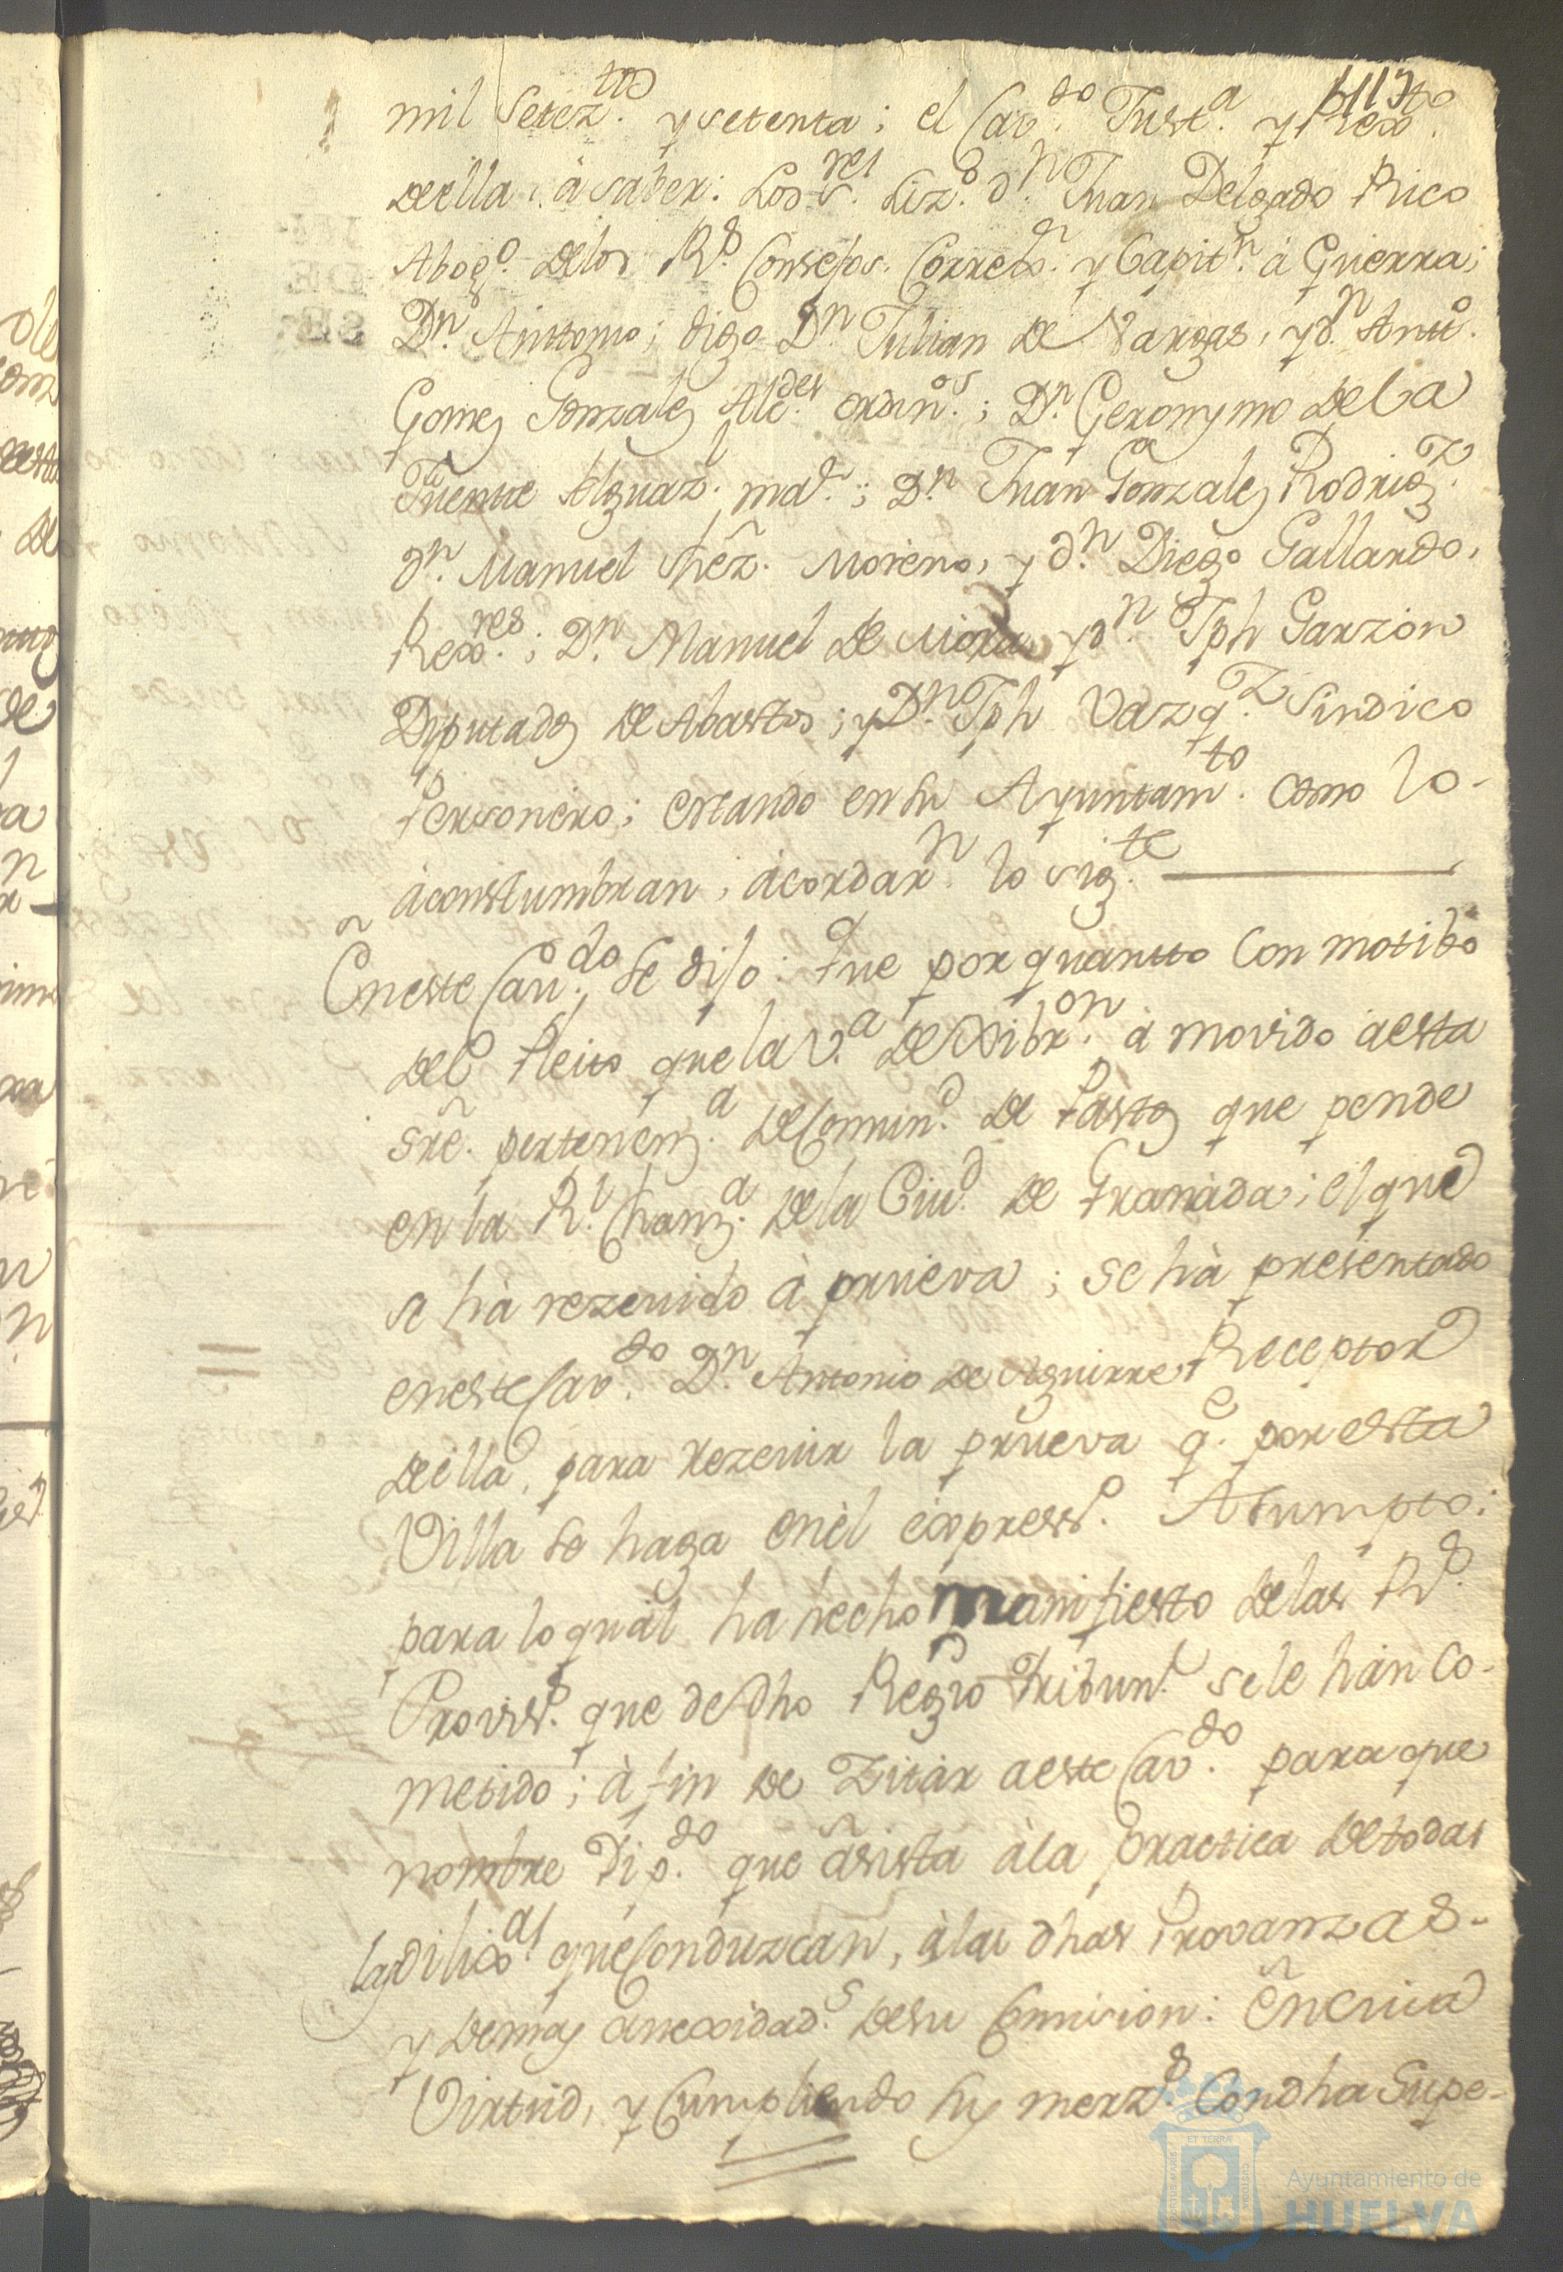 mil Setez.tos y setenta; el Cav.do Just.a y Rex.to
de ella; à saver: Los S.res Liz.do d.n Juan Delgado Rico
Abog.o delos R.s Consejos. Correx.r y Capit.n à Guerra;
D.n Anttonio; digo D.n Julian de Vargas, y d.n Antt.o
Gomez Gonzalez Alc.des ordin.os; D.n Geronymo dela
Fuente Alguaz.l ma.or; D.n Juan Gonzalez Rodrig.z
d.n Manuel Shēz. Moreno, y d.n Diego Gallardo,
Rex.res; D.n Manuel de Mora, y d.n Jph Garzon
Diputados de Abastos; y D.n Jph Vazq.z Sindico
Personero; estando en su Ayuntam.to como lo-
àcostumbran, àcordar.n lo sig.te
En este Cav.do se dijo: Que por quantto con motibo
del Pleito que la V.a de Xibr.on à movido àesta
sre. pertenenz.a de Comun.d de Pastos que pende
en la R.l Chanz.a dela Ciu.d de Granàda; el que
se hà rezevido à prueva; se hà presentado
en este Cav.do D.n Antonio de Aguirre, Receptor
de ella, para rezevir la prueva q.e por esta
Villa se haga en èl expres.do Asumpto:
para lo quàl ha hecho manifiesto delas R.s
Provis.s que de dho Regio Tribun.l se le hàn co-
metido; à fin de Zitàr a este Cav.do para que
nombre Dip.do que àsista àla practica de todas
las dilix.as que conduzcan, àlas dhas Provanzas-
y demas anexidad.s de su Comision: En cuia
Virtud, y Cumpliendo sus merz.s con dha Supe-
Ayuntamiento de
HUELVA